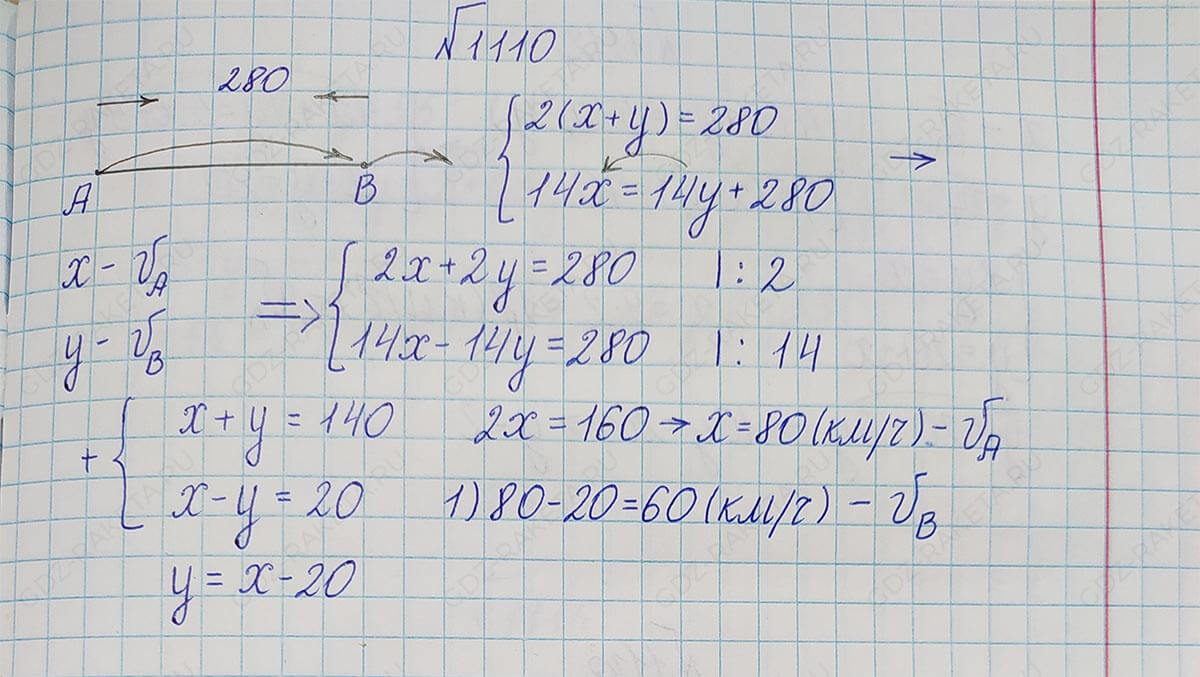 №1110
280
A B
{ 2(x+y)=280
{ 14x=14y+280 →
x - VA
y - VB
=> { 2x+2y=280 |:2
{ 14x-14y=280 |:14
+ { x+y=140
{ x-y=20
y=x-20
2x=160→x=80(км/ч)-VA
1) 80-20=60(км/ч) - VB
GDZ-RAKETA.RU